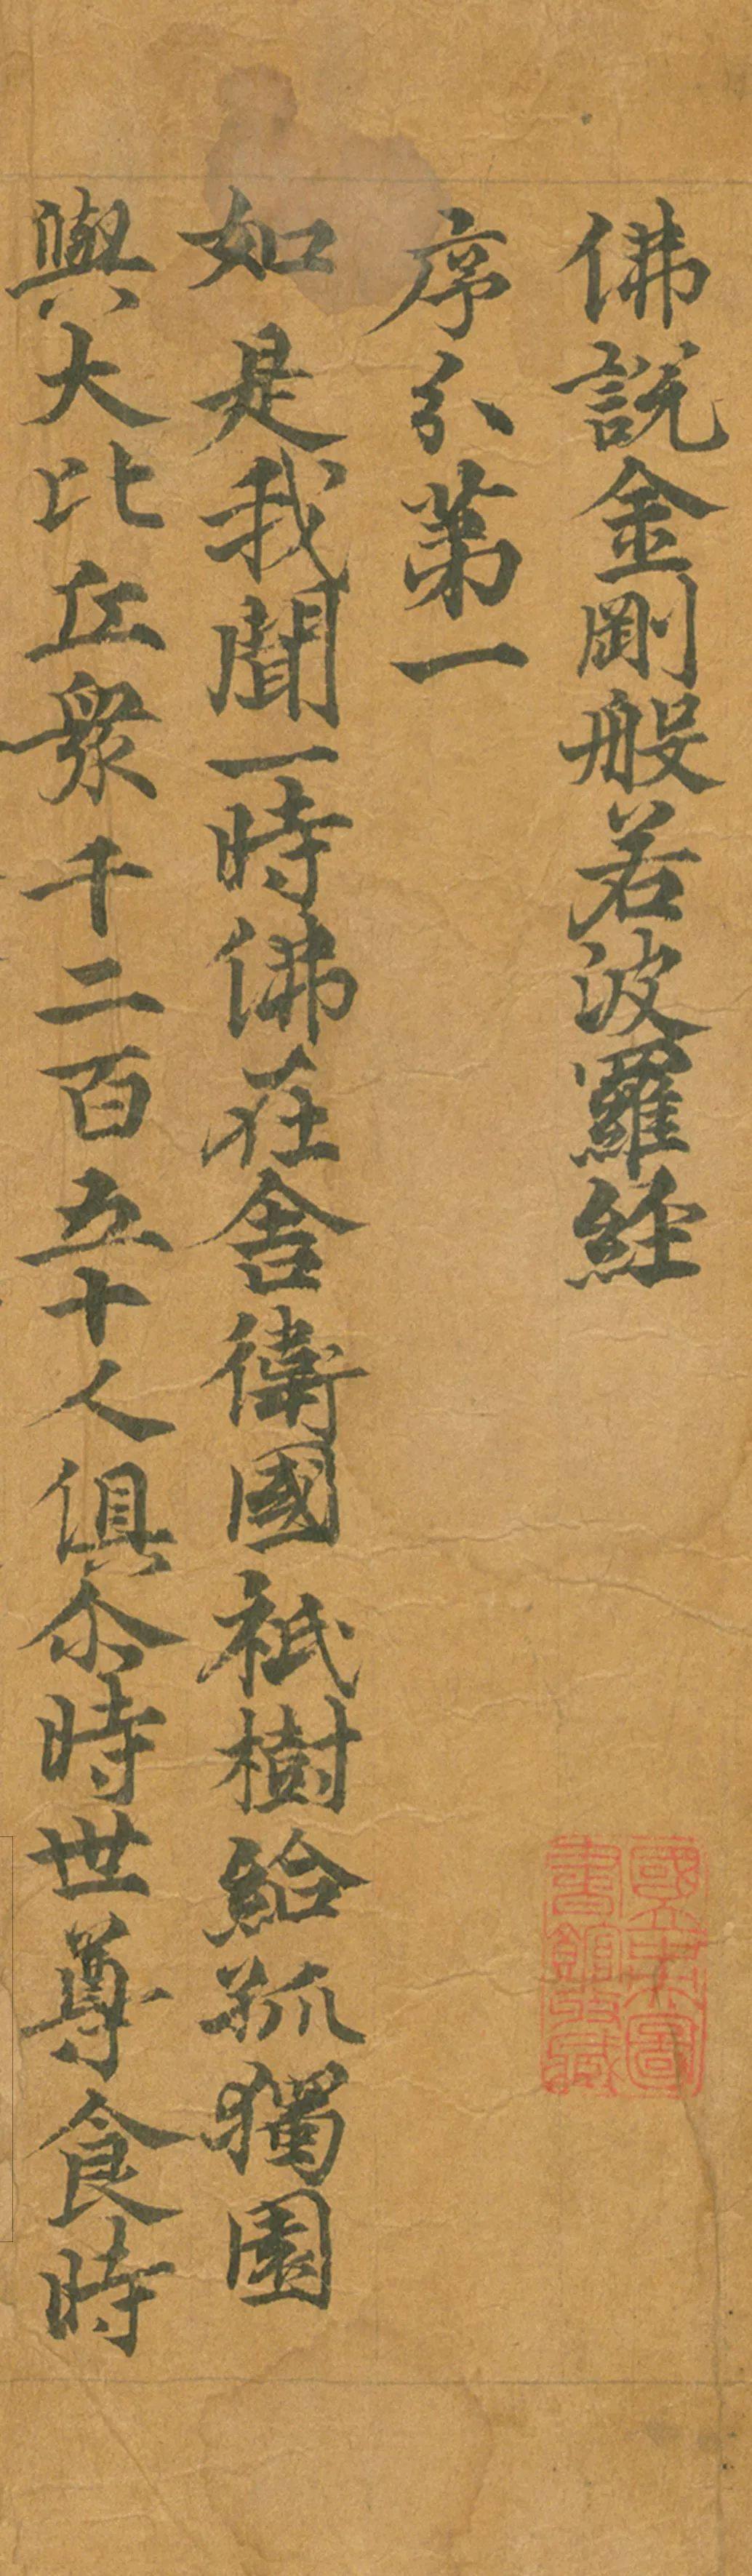 佛說金剛般若波羅經
序分苐一
如是我聞一時佛在舍衛國祇樹給孤獨園
與大比丘衆千二百五十人俱尒時世尊食時
國立中央圖
書館收藏